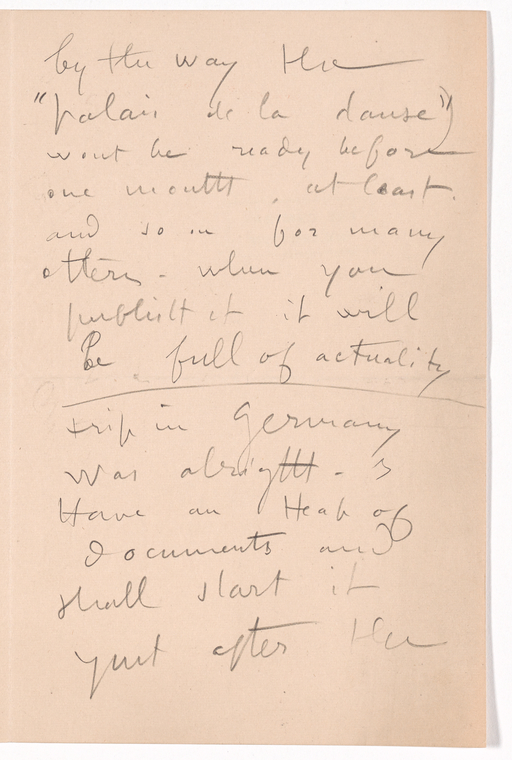 by the way the
"palais de la danse")
wont be ready before
one mouth, at least.
and so on for many
others - when you
publish it it will
Be full of actuality
trip in Germany
was alright - I
Have an Heap of
documents and
shall start it
just after the